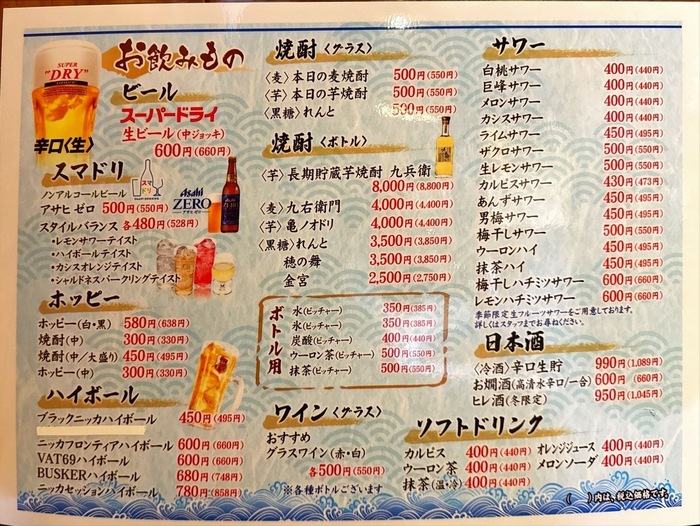 お飲みもの
SUPER "DRY"
辛口〈生〉
ビール
スーパードライ
生ビール（中ジョッキ）
600円（660円）
スマドリ
スマドリ
ノンアルコールビール
アサヒ ゼロ 500円（550円）
Asahi ZERO
アサヒゼロ
スタイルバランス 各480円（528円）
・レモンサワーテイスト
・ハイボールテイスト
・カシスオレンジテイスト
・シャルドネスパークリングテイスト
ホッピー
ホッピー（白・黒） 580円（638円）
焼酎（中） 300円（330円）
焼酎（中/大盛り） 450円（495円）
ホッピー（中） 300円（330円）
ハイボール
ブラックニッカハイボール 450円（495円）
ニッカフロンティアハイボール 600円（660円）
VAT69ハイボール 600円（660円）
BUSKERハイボール 680円（748円）
ニッカセッションハイボール 780円（858円）
焼酎〈グラス〉
〈麦〉本日の麦焼酎 500円（550円）
〈芋〉本日の芋焼酎 500円（550円）
〈黒糖〉れんと 500円（550円）
焼酎〈ボトル〉
〈芋〉長期貯蔵芋焼酎 九兵衛
8,000円（8,800円）
〈麦〉九右衛門 4,000円（4,400円）
〈芋〉亀ノオドリ 4,000円（4,400円）
〈黒糖〉れんと 3,500円（3,850円）
穂の舞 3,500円（3,850円）
金宮 2,500円（2,750円）
ボトル用
水（ピッチャー） 350円（385円）
氷（ピッチャー） 350円（385円）
炭酸（ピッチャー） 400円（440円）
ウーロン茶（ピッチャー） 500円（550円）
抹茶（ピッチャー） 500円（550円）
ワイン〈グラス〉
おすすめ
グラスワイン（赤・白）
各500円（550円）
※各種ボトルございます
サワー
白桃サワー 400円（440円）
巨峰サワー 400円（440円）
メロンサワー 400円（440円）
カシスサワー 400円（440円）
ライムサワー 450円（495円）
ザクロサワー 500円（550円）
生レモンサワー 500円（550円）
カルピスサワー 430円（473円）
あんずサワー 450円（495円）
男梅サワー 450円（495円）
梅干しサワー 500円（550円）
ウーロンハイ 450円（495円）
抹茶ハイ 450円（495円）
梅干しハチミツサワー 600円（660円）
レモンハチミツサワー 600円（660円）
季節限定生フルーツサワーをご用意しております。
詳しくはスタッフまでお尋ねください。
日本酒
〈冷酒〉辛口生貯 990円（1,089円）
お燗酒（高清水辛口/一合） 600円（660円）
ヒレ酒（冬限定） 950円（1,045円）
ソフトドリンク
カルピス 400円（440円） オレンジジュース 400円（440円）
ウーロン茶 400円（440円） メロンソーダ 400円（440円）
抹茶（温・冷） 400円（440円）
（ ）内は、税込価格です。